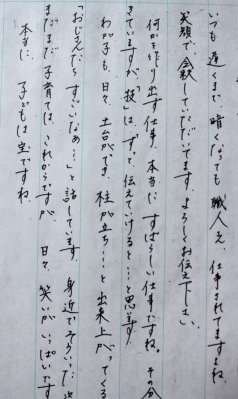 いつも遅くまで暗くなっても職人さん、仕事されてますよね、
笑顔で会釈していただいてます。よろしくお伝え下さい。
何かを作り出す仕事、本当に、すばらしい仕事ですね。その分
きていますが、"技"は、ずっと伝えていけると…と思います
わが子も、日々、土台ができ、柱が立ち…と出来上がってくる
「おじぇんだちすごいなぁ…」と話しています。身近でそういった
まだまだ子育ては、これからですが、日々、笑いがいっぱいです
本当に、子どもは宝ですね。